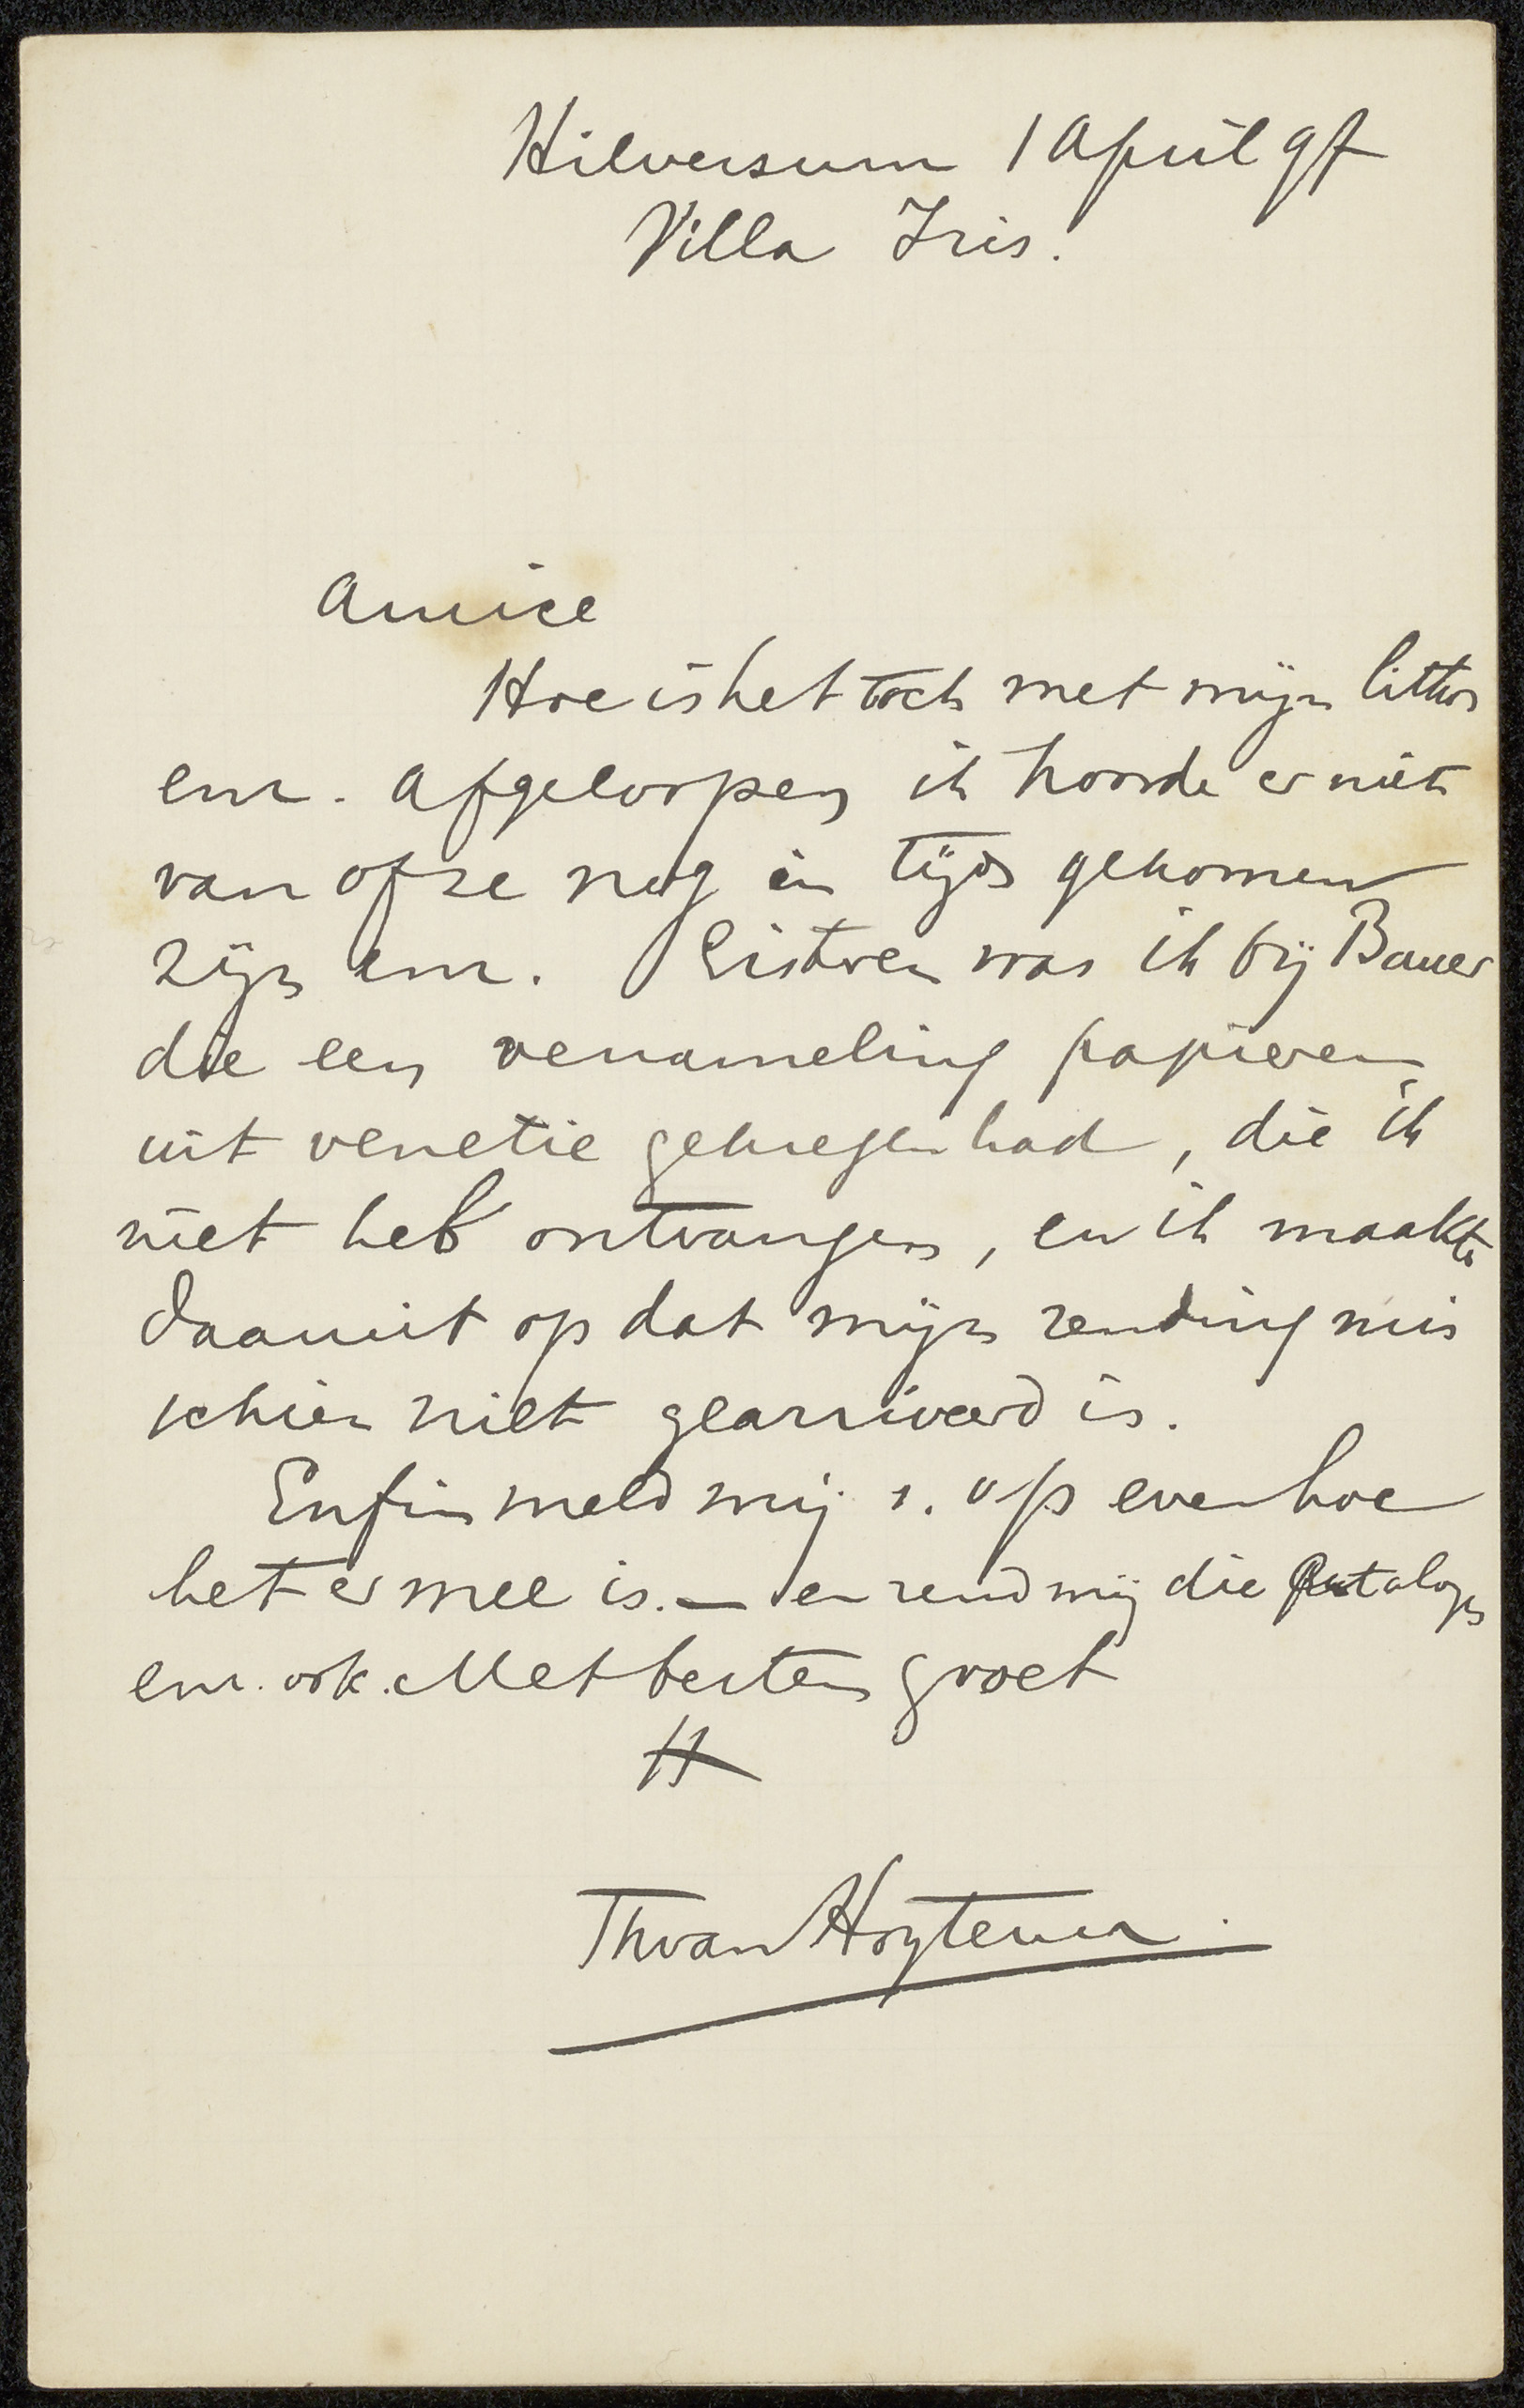 Hilversum 1 April 97
Villa Iris.
Amice
Hoe is het toch met mijn lithos
enz. afgeloopen ik hoorde er niets
van of ze nog in tijds gekomen
zijn enz. Gisteren was ik bij Bauer
die een verzameling papieren
uit venetie gekregen had, die ik
niet heb ontvangen, en ik maakte
daaruit op dat mijn zending mis
schien niet gearriveerd is.
Enfin meld mij s. v. p even hoe
het er mee is. — en zend mij die Catalogs
enz. ook. Met besten groet
tt
Th van Hoytema.